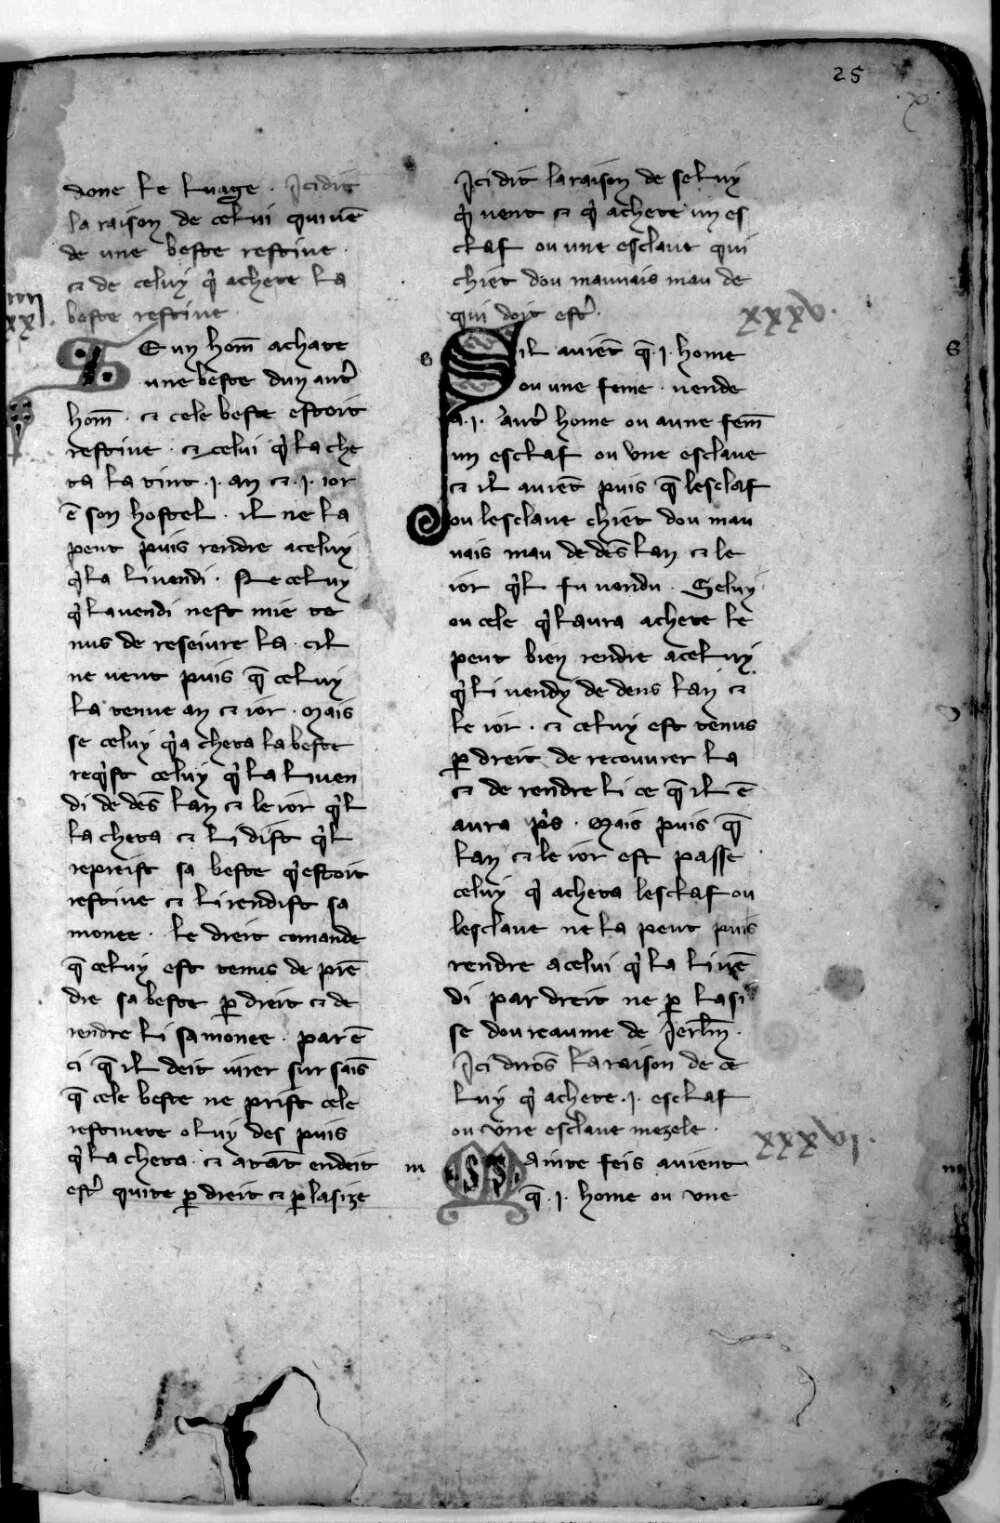 25
done le luage. Ici dit
la raison de celui qui uẽ
de une beste restiue.
⁊ de celuy q̇ achete la
beste restiue.
SE uy hom̄ achate
une beste dun aut᷑
hom̄. ⁊ cele beste estoit
restiue. ⁊ celui q̇ la che
ta la tint .j. an ⁊ .j. ior
ẽ son hostel. il ne la
peut puis rendre a celuy
q̇ la li uendi. Ne celuy
q̇ la uendi nest mie te
nus de reseiure la. cil
ne ueut puis q̃ celuy
la tenue an ⁊ ior. Mais
se celuy q̇ a cheta la beste
req̇st celuy q̇ la li uen
di de dẽs lan ⁊ le ior q̇l
la cheta ⁊ li dist q̇l
repreist sa beste q̇ estoit
restiue ⁊ li rendist sa
monee. le dreit comande
q̃ celuy est tenus de prẽ
dre sa beste ꝑ dreit ⁊ de
rendre li sa monee. par ẽ
ci q̃ il deit iurer sur sais̃
q̃ cele beste ne prist cele
restiuete o luy des puis
q̇ la cheta. ⁊ atãt en deit
est᷑ quite ꝑ dreit ⁊ ꝑ lasize
Ici dit la raison de seluy
q̇ uent ⁊ q̇ achete un es
claf ou une esclaue qui
chiet dou mauuais mau de
qui doit est᷑.
xxxv.
s
SIl auiẽt q̃ .j. home
ou une feme. uende
a .j. aut᷑ home ou a une fem̄
un esclaf ou vne esclaue
⁊ il auiẽt puis q̃ lesclaf
ou lesclaue chiet dou mau
uais mau de dẽs lan ⁊ le
ior q̇l fu uandu. Seluy
ou cele q̇ laura achete le
peut bien rendre a celuy
q̇ li uendy de dens lan ⁊
le ior. ⁊ celuy est tenus
ꝑ dreit de recouurer la
⁊ de rendre li ce q̃ il ẽ
aura ṗs. Mais puis q̃
lan ⁊ le ior est passe
celuy q̇ acheta lesclaf ou
lesclaue ne la peut puis
rendre a celui q̇ la li uẽ
di par dreit ne ꝑ lasi
se dou reaume de Jerl̄m.
Ici dirõs la raison de ce
luy q̇ achete .j. esclaf
ou vne esclaue mezele.
xxxvj.
m
MAinte feis auient
q̃ .j. home ou vne